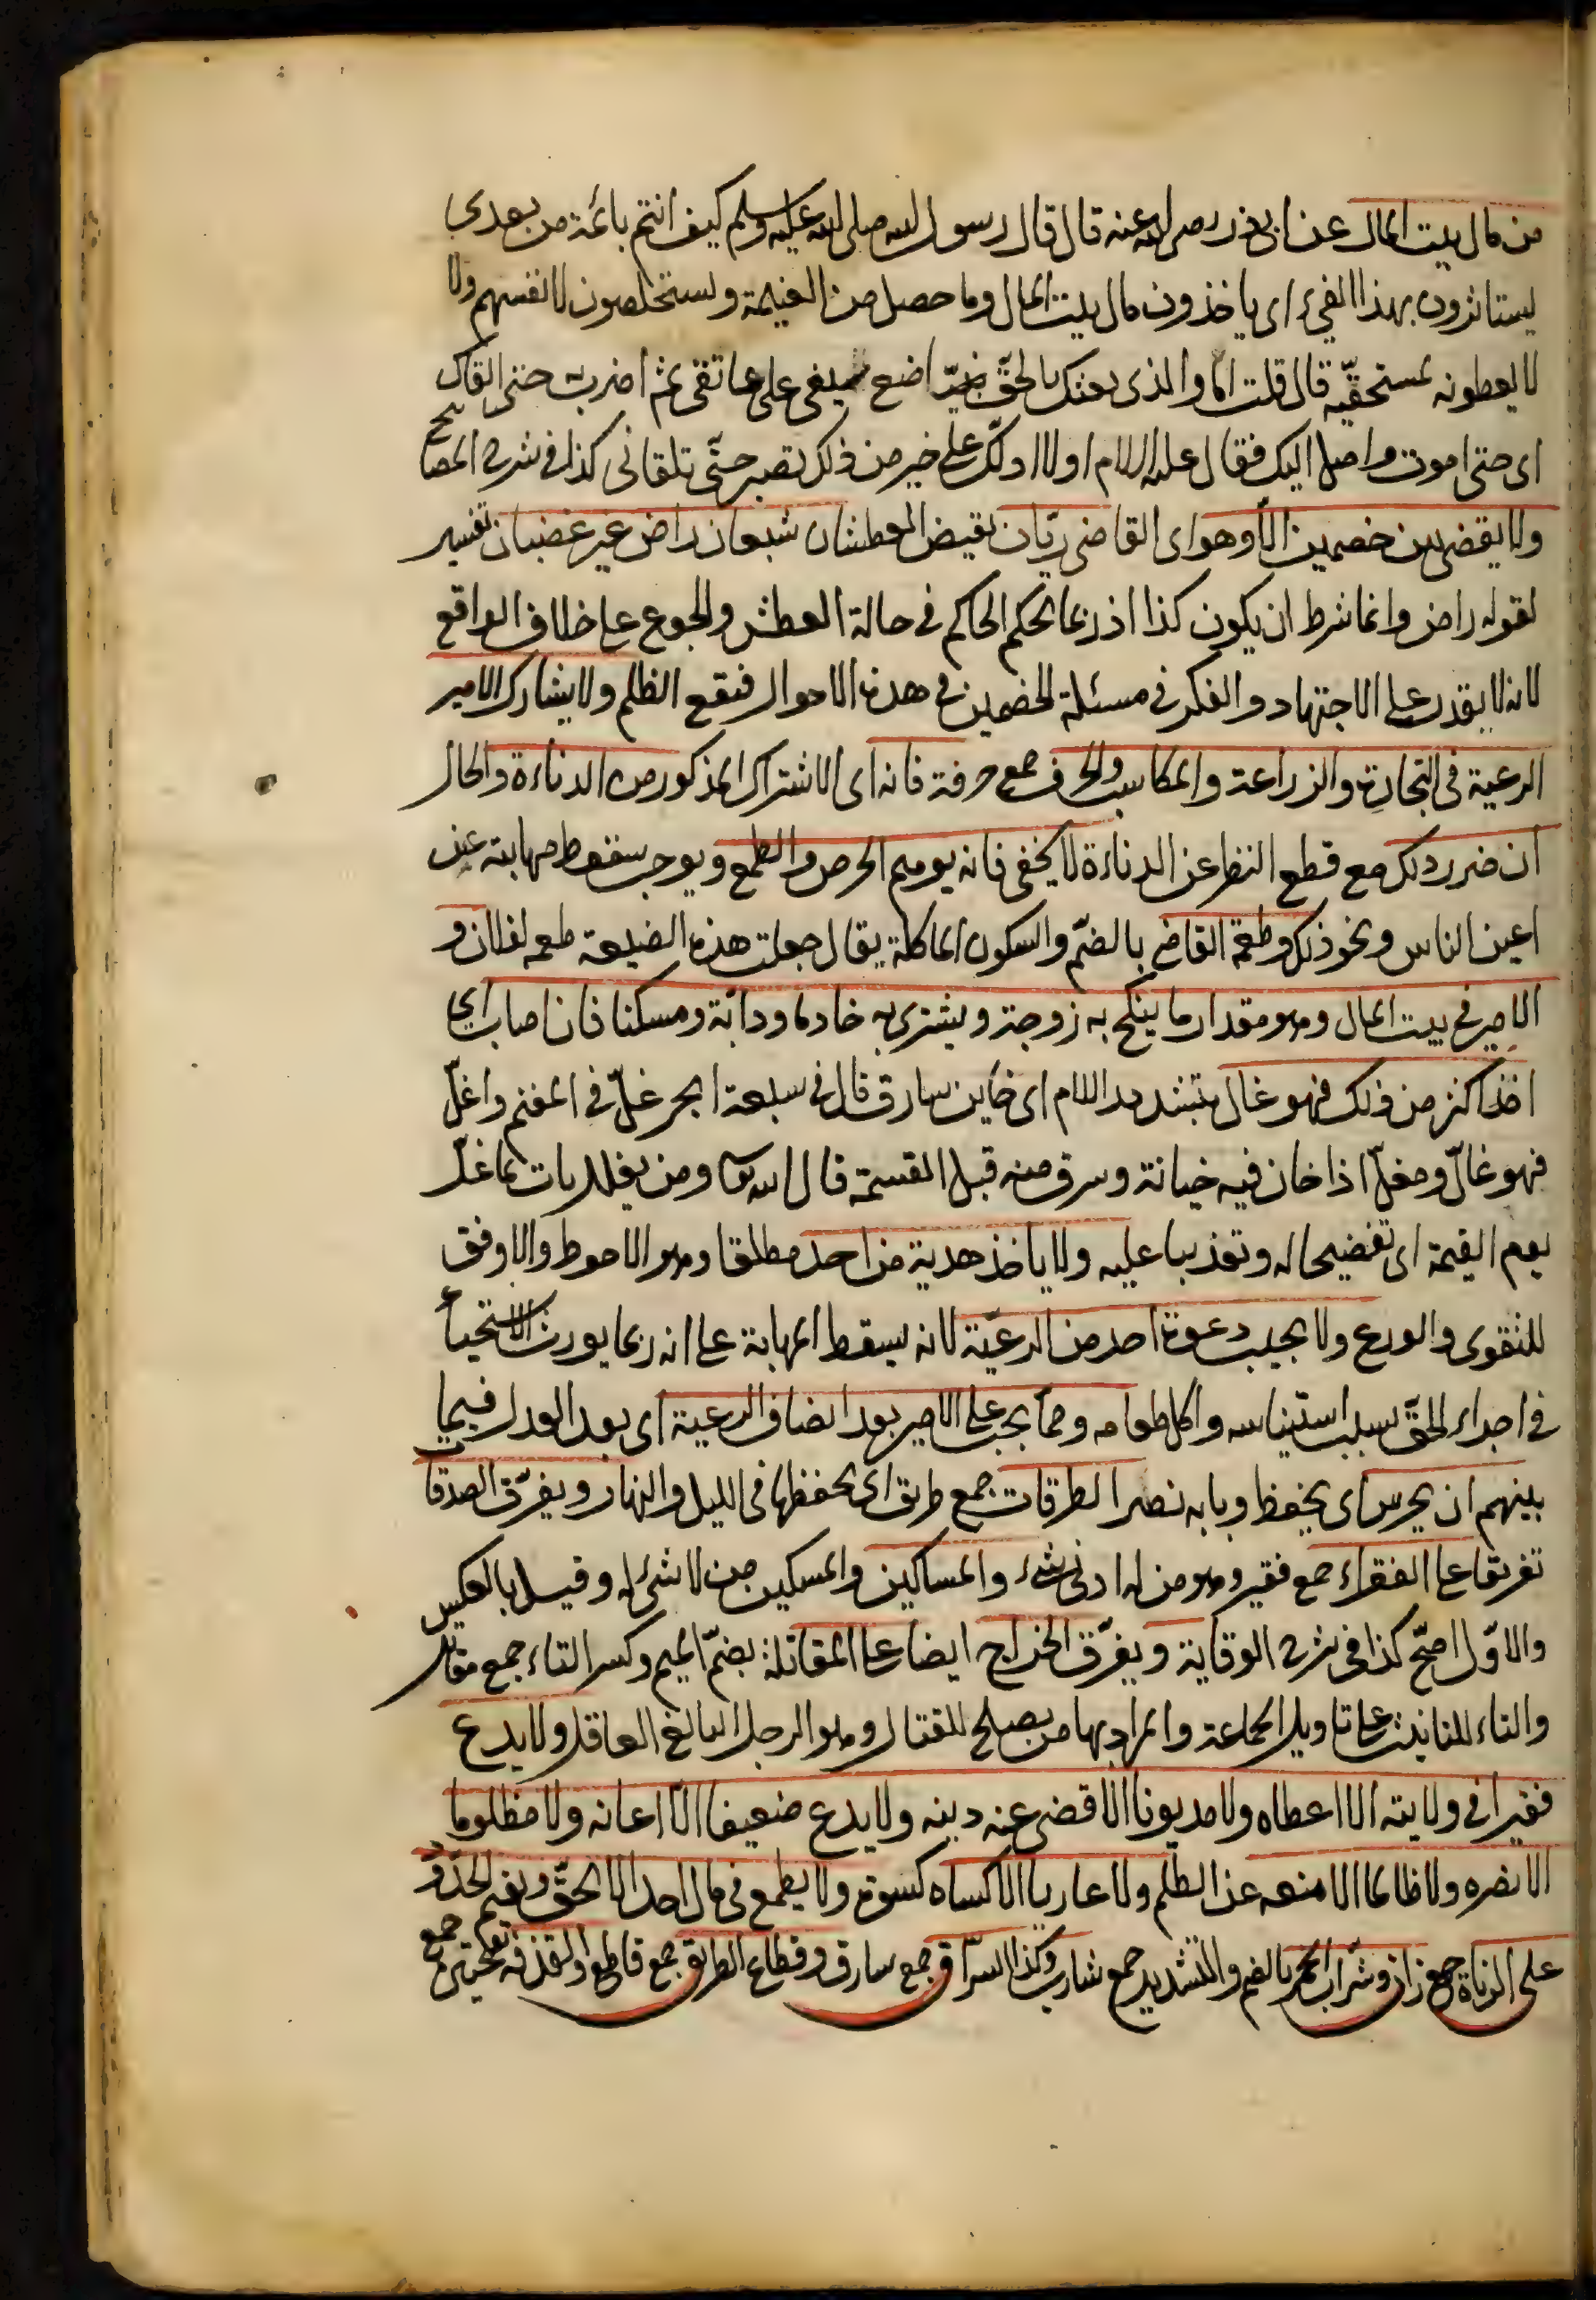 من مال بيت المال عن ابى ذر رضى الله عنه قال قال رسول الله صلى الله عليه وسلم كيف انتم بائمة من بعدى
يستاثرون بهذا الفئ اى ياخذون مال بيت المال وما حصل من الغنيمة ويستخلصون لانفسهم ولا
لا يعطونه لمستحقيه قال قلت اما والذى بعثك بالحق نبيا اضع سيفى على عاتقى ثم اضرب حتى القاك
اى حتى اموت واصل اليك فقال عليه السلام اولا ادلك على خير من ذلك تصبر حتى تلقانى كذا فى شرح المصابيح
ولا يقضى بين خصمين الا وهو اى القاضى ريان نقيض العطشان شبعان راض غير غضبان تفسير
لقوله راض وانما شرط ان يكون كذا اذ ربما يحكم الحاكم فى حالة العطش والجوع على خلاف الواقع
لانه لا يقدر على الاجتهاد والفكر فى مسئلة الخصمين فى هذه الاحوال فيقع الظلم ولا يشارك الامير
الرعية فى التجارة والزراعة والمكاسب والحرف جمع حرفة فانه اى الاشتراك المذكور من الدناءة والحال
ان ضرر ذلك مع قطع النظر عن الدناءة لا يخفى فانه يوهم الحرص والطمع ويوجب سقوط مهابته عن
اعين الناس ونحو ذلك وطعمة القاضى بالضم والسكون الماكلة يقال جعلت هذه الضيعة طعمه لفلان و
الامير فى بيت المال وهو مقدار ما ينكح به زوجة ويشترى به خادما ودابة ومسكنا فان اصاب اى
اخذ اكثر من ذلك فهو غال بتشديد اللام اى خاين سارق قال فى سبعة ابحر غل فى المغنم واغل
فهو غال ومغل اذا خان فيه خيانة وسرق منه قبل القسمة قال الله تعا ومن يغلل يات بما غل
يوم القيمة اى تفضيحا له وتعذيبا عليه ولا ياخذ هدية من احد مطلقا وهو الاحوط والاوفق
للتقوى والورع ولا يجيب دعوة احد من الرعية لانه يسقط المهابة على انه ربما يورث الاستحياء
فى اجراء الحق بسبب استيناسه واكل طعامه ومما يجب على الامير بعد انصاف الرعية اى بعد العدل فيما
بينهم ان يحرس اى يحفظ وبابه نصر الطرقات جمع طريق اى يحفظها فى الليل والنهار ويفرق الصدقات
تفريقا على الفقراء جمع فقير وهو من له ادنى شئ والمساكين والمسكين من لا شئ له وقيل بالعكس
والاول اصح كذا فى شرح الوقاية ويفرق الخراج ايضا على المقاتلة بضم الميم وكسر التاء جمع مقاتل
والتاء للتانيث على تاويل الجماعة والمراد بها من يصلح للقتال وهو الرجل البالغ العاقل ولا يدع
فقيرا فى ولايته الا اعطاه ولا مديونا الا قضى عنه دينه ولا يدع ضعيفا الا اعانه ولا مظلوما
الا نصره ولا ظالما الا منعه عن الظلم ولا عاريا الا كساه كسوة ولا يطمع فى مال احد الا بالحق ويقيم الحدود
على الزناة جمع زان وشراب الخمر بالضم والتشديد جمع شارب وكذا السراق جمع سارق وقطاع الطريق جمع قاطع والقذفة بفتحتين جمع